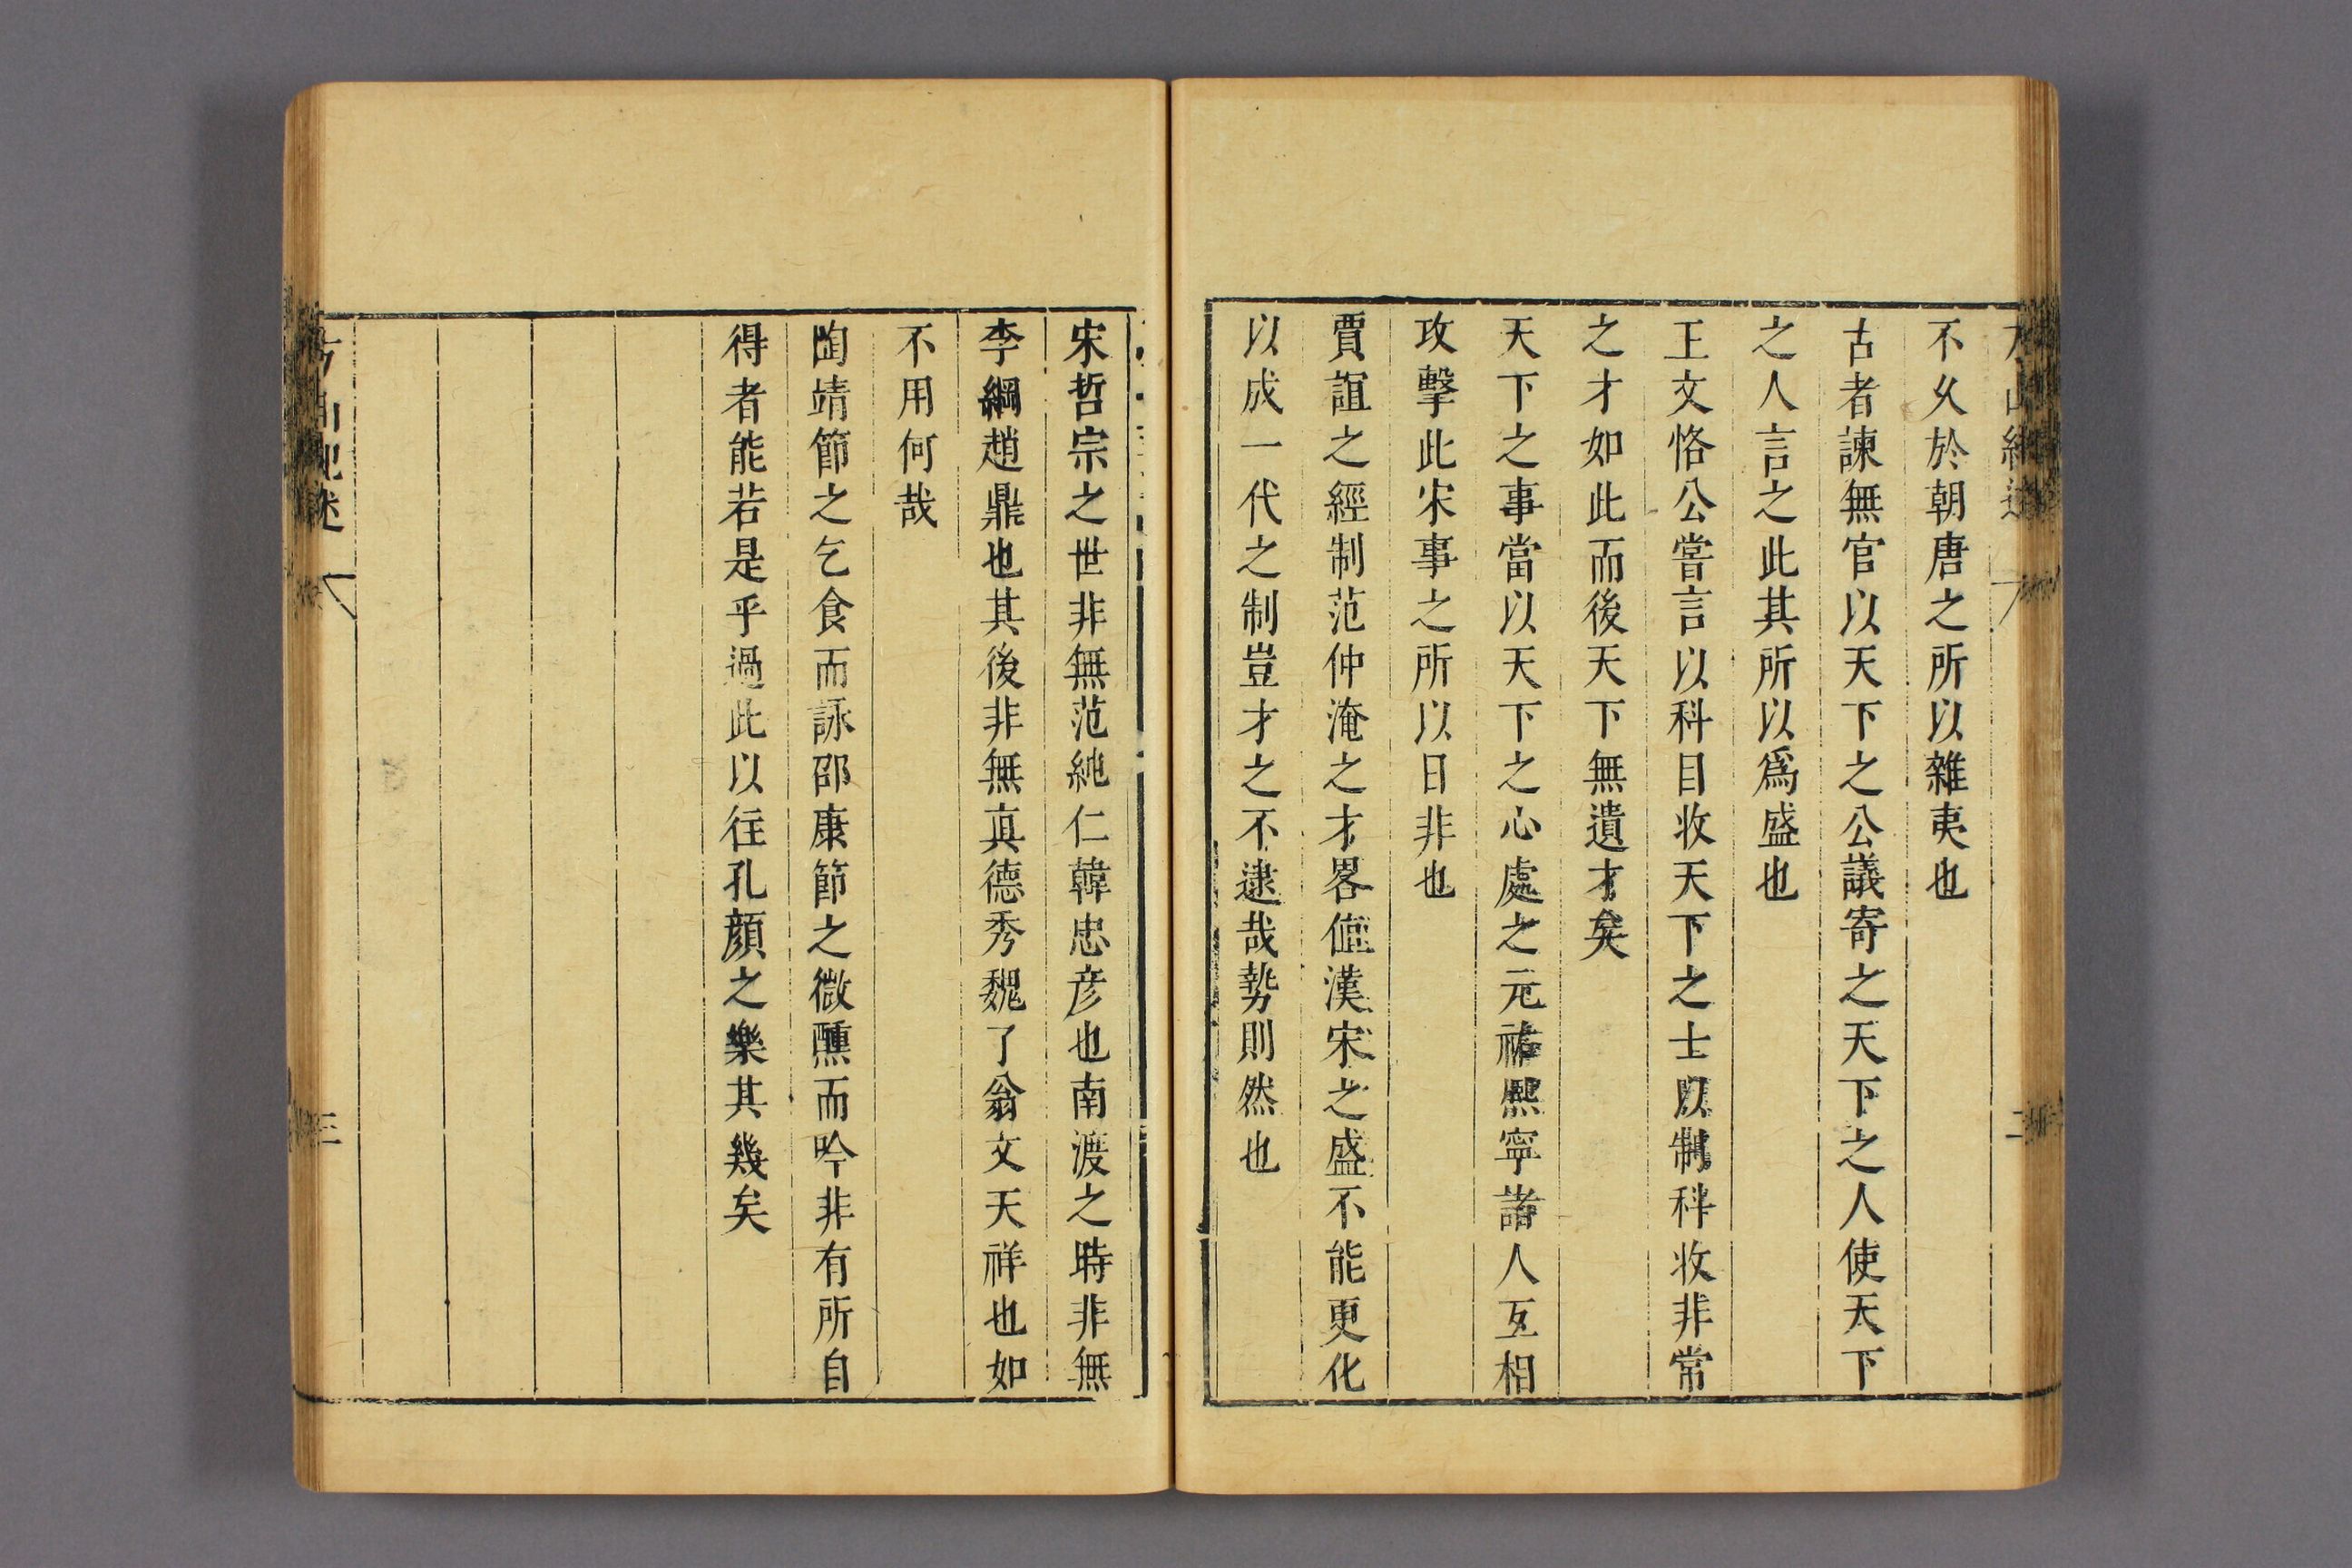 不久於朝唐之所以雜夷也
古者諫無官以天下之公議寄之天下之人使天下
之人言之此其所以爲盛也
王文恪公嘗言以科目收天下之士以制科收非常
之才如此而後天下無遺才矣
天下之事當以天下之心處之元祐熙寧諸人互相
攻擊此宋事之所以日非也
賈誼之經制范仲淹之才畧値漢宋之盛不能更化
以成一代之制豈才之不逮哉勢則然也
宋哲宗之世非無范純仁韓忠彦也南渡之時非無
李綱趙鼎也其後非無真德秀魏了翁文天祥也如
不用何哉
陶靖節之乞食而詠邵康節之微醺而吟非有所自
得者能若是乎過此以往孔顔之樂其幾矣
方山紀述
三